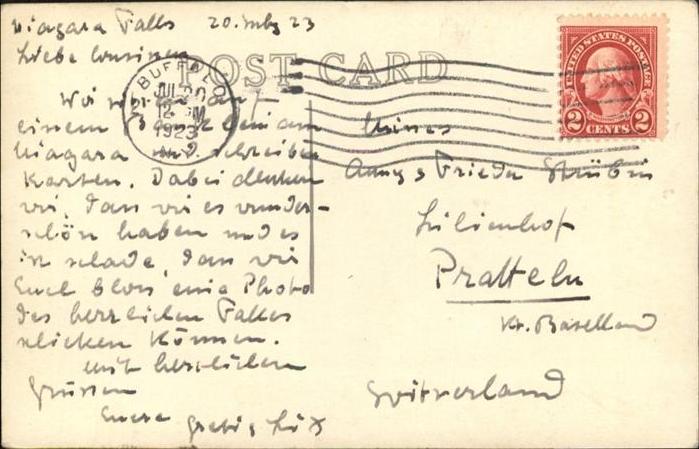 Niagara Falls 20. July 23
Liebe Cousinen
POST CARD
BUFFALO
JUL 20
12 M
1923
N.Y.
UNITED STATES POSTAGE
2 CENTS 2
Wir
einem
Niagara und schreiben
Karten. Dabei denken
wir, dass wir es wunder-
schön haben und es
ist schade, dass wir
Euch bloss eine Photo
des herrlichen Falles
schicken können.
Mit herzlichen
Grüssen
Eure
Annys Frieda Stübin
Lilienhof
Pratteln
Kt. Baselland
Switzerland